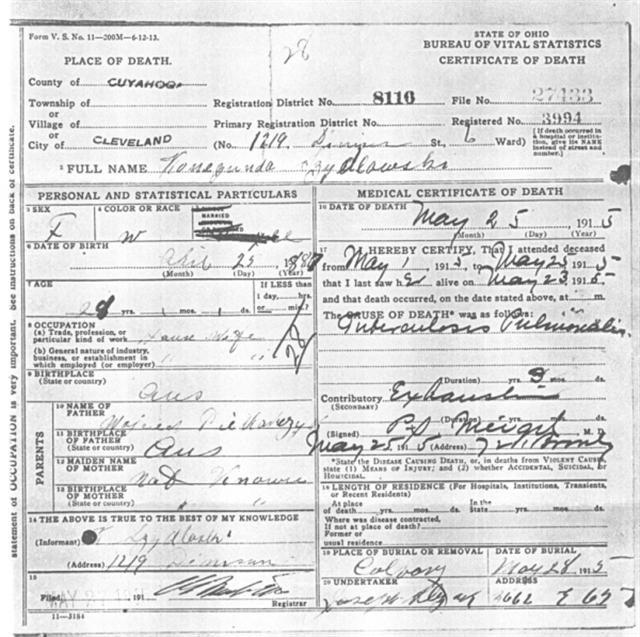 Form V. S. No. 11—200M—6-12-13.
28
STATE OF OHIO
BUREAU OF VITAL STATISTICS
CERTIFICATE OF DEATH
PLACE OF DEATH.
County of CUYAHOGA
Township of
or
Village of
or
City of CLEVELAND
Registration District No. 8116 File No. 27133
Primary Registration District No. Registered No. 3994
(No. 1219 St., 6 Ward)
[If death occurred in a hospital or institution, give its NAME instead of street and number.]
FULL NAME
PERSONAL AND STATISTICAL PARTICULARS
3 SEX
F
4 COLOR OR RACE
W
MARRIED
6 DATE OF BIRTH
April 25
(Month) (Day) (Year)
7 AGE
28 yrs. mos. ds.
If LESS than
1 day, hrs.
or min.?
8 OCCUPATION
(a) Trade, profession, or
particular kind of work House Wife
(b) General nature of industry,
business, or establishment in
which employed (or employer) " "
28
9 BIRTHPLACE
(State or country)
Aus
PARENTS
10 NAME OF
FATHER
11 BIRTHPLACE
OF FATHER
(State or country)
Aus
12 MAIDEN NAME
OF MOTHER
13 BIRTHPLACE
OF MOTHER
(State or country)
14 THE ABOVE IS TRUE TO THE BEST OF MY KNOWLEDGE
(Informant)
(Address) 1219
15
Filed MAY 27 191
Registrar
11—3184
MEDICAL CERTIFICATE OF DEATH
16 DATE OF DEATH
May 25, 1915
(Month) (Day) (Year)
17 I HEREBY CERTIFY, That I attended deceased
from May 1, 1915, to May 25, 1915
that I last saw her alive on May 23, 1915
and that death occurred, on the date stated above, at m.
The CAUSE OF DEATH* was as follows:
Tuberculosis Pulmonalis
(Duration) yrs. 9 mos. ds.
Contributory
(SECONDARY)
Exhaustion
(Duration) yrs. mos. ds.
(Signed) M. D.
May 25, 1915 (Address)
*State the DISEASE CAUSING DEATH, or, in deaths from VIOLENT CAUSES, state (1) MEANS OF INJURY; and (2) whether ACCIDENTAL, SUICIDAL, or HOMICIDAL.
18 LENGTH OF RESIDENCE (For Hospitals, Institutions, Transients, or Recent Residents)
At place
of death yrs. mos. ds.
In the
State yrs. mos. ds.
Where was disease contracted,
If not at place of death?
Former or
usual residence
19 PLACE OF BURIAL OR REMOVAL
Calvary
DATE OF BURIAL
May 28, 1915
20 UNDERTAKER
Joseph
ADDRESS
3661 E 65
statement of OCCUPATION is very important. See instructions on back of certificate.